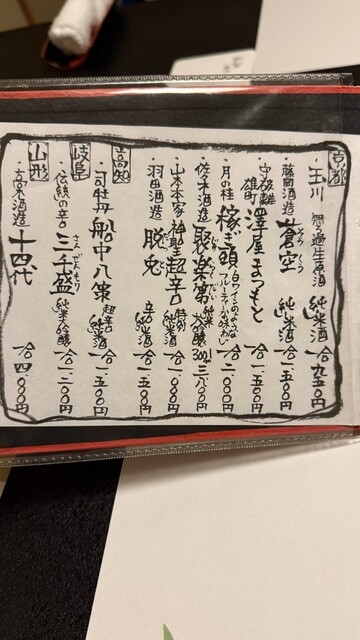 京都
・玉川 無ろ過生原酒 純米酒 一合 九五〇円
藤岡酒造 蒼空 そうくう 純米酒 一合 一五〇〇円
澤屋まつもと 一合 一五〇〇円
・月の桂 稼ぎ頭 白ワインのような フルーティーな味わい 一合 一二〇〇円
佐々木酒造 聚楽第 じゅらくだい 300ml 三八〇〇円
・山本本家 神聖 超辛口 特別純米酒 一合 一〇〇〇円
・羽田酒造 脱兎 だっと 辛口純米酒 一合 一五〇〇円
高知
・司牡丹 船中八策 超辛口純米酒 一合 一五〇〇円
岐阜
・伝統の辛口 三千盛 さんぜんもり 純米吟醸 一合 一二〇〇円
山形
・高木酒造 十四代 一合 四〇〇〇円